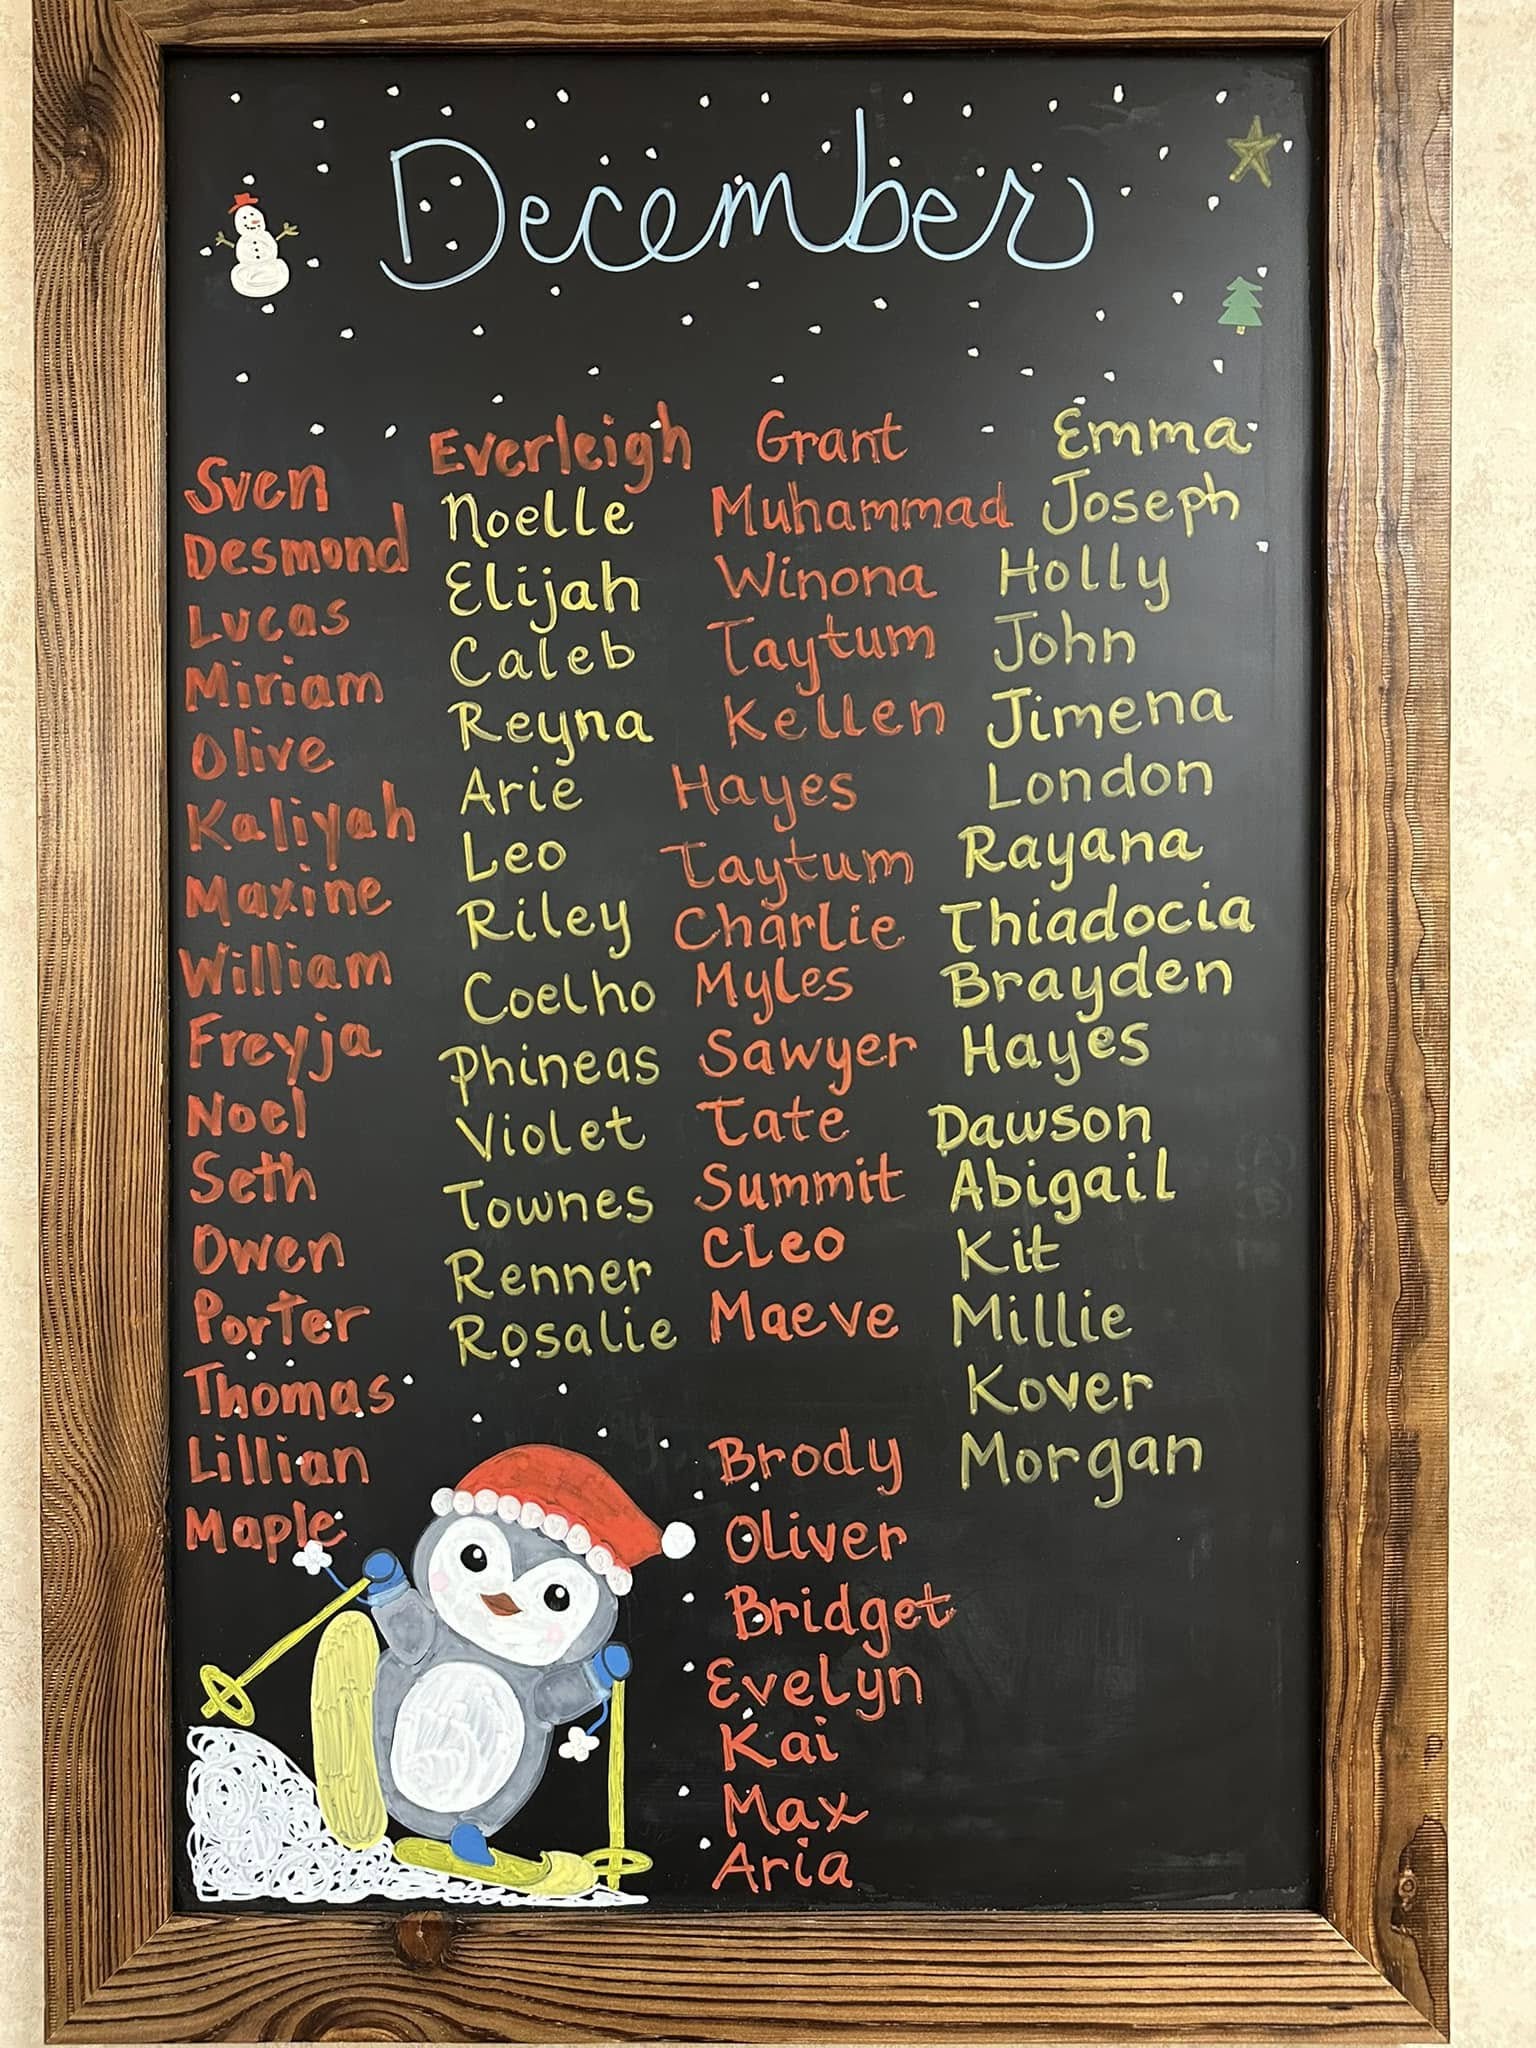 December
Sven
Desmond
Lucas
Miriam
Olive
Kaliyah
Maxine
William
Freyja
Noel
Seth
Owen
Porter
Thomas
Lillian
Maple
Everleigh
Noelle
Elijah
Caleb
Reyna
Arie
Leo
Riley
Coelho
Phineas
Violet
Townes
Renner
Rosalie
Grant
Muhammad
Winona
Taytum
Kellen
Hayes
Taytum
Charlie
Myles
Sawyer
Tate
Summit
Cleo
Maeve
Brody
Oliver
Bridget
Evelyn
Kai
Max
Aria
Emma
Joseph
Holly
John
Jimena
London
Rayana
Thiadocia
Brayden
Hayes
Dawson
Abigail
Kit
Millie
Kover
Morgan